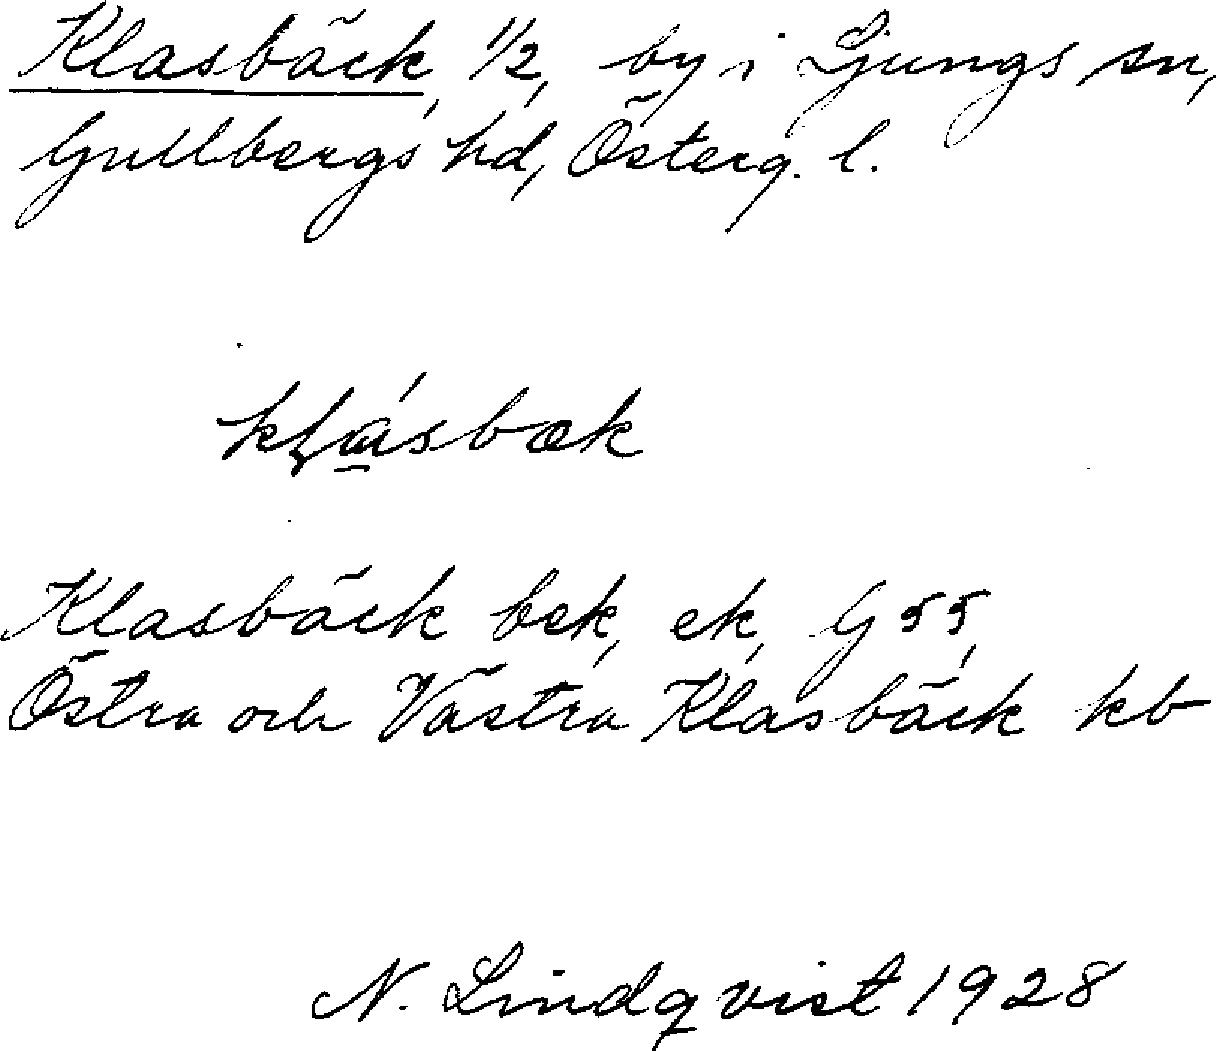 Klasbäck, 1/2, by i Ljungs sn,
Gullbergs hd, Österg. l.
kɫa̲´sbæk
Klasbäck bek, ek, G 55,
Östra och Västra Klasbäck kb
N. Lindqvist 1928